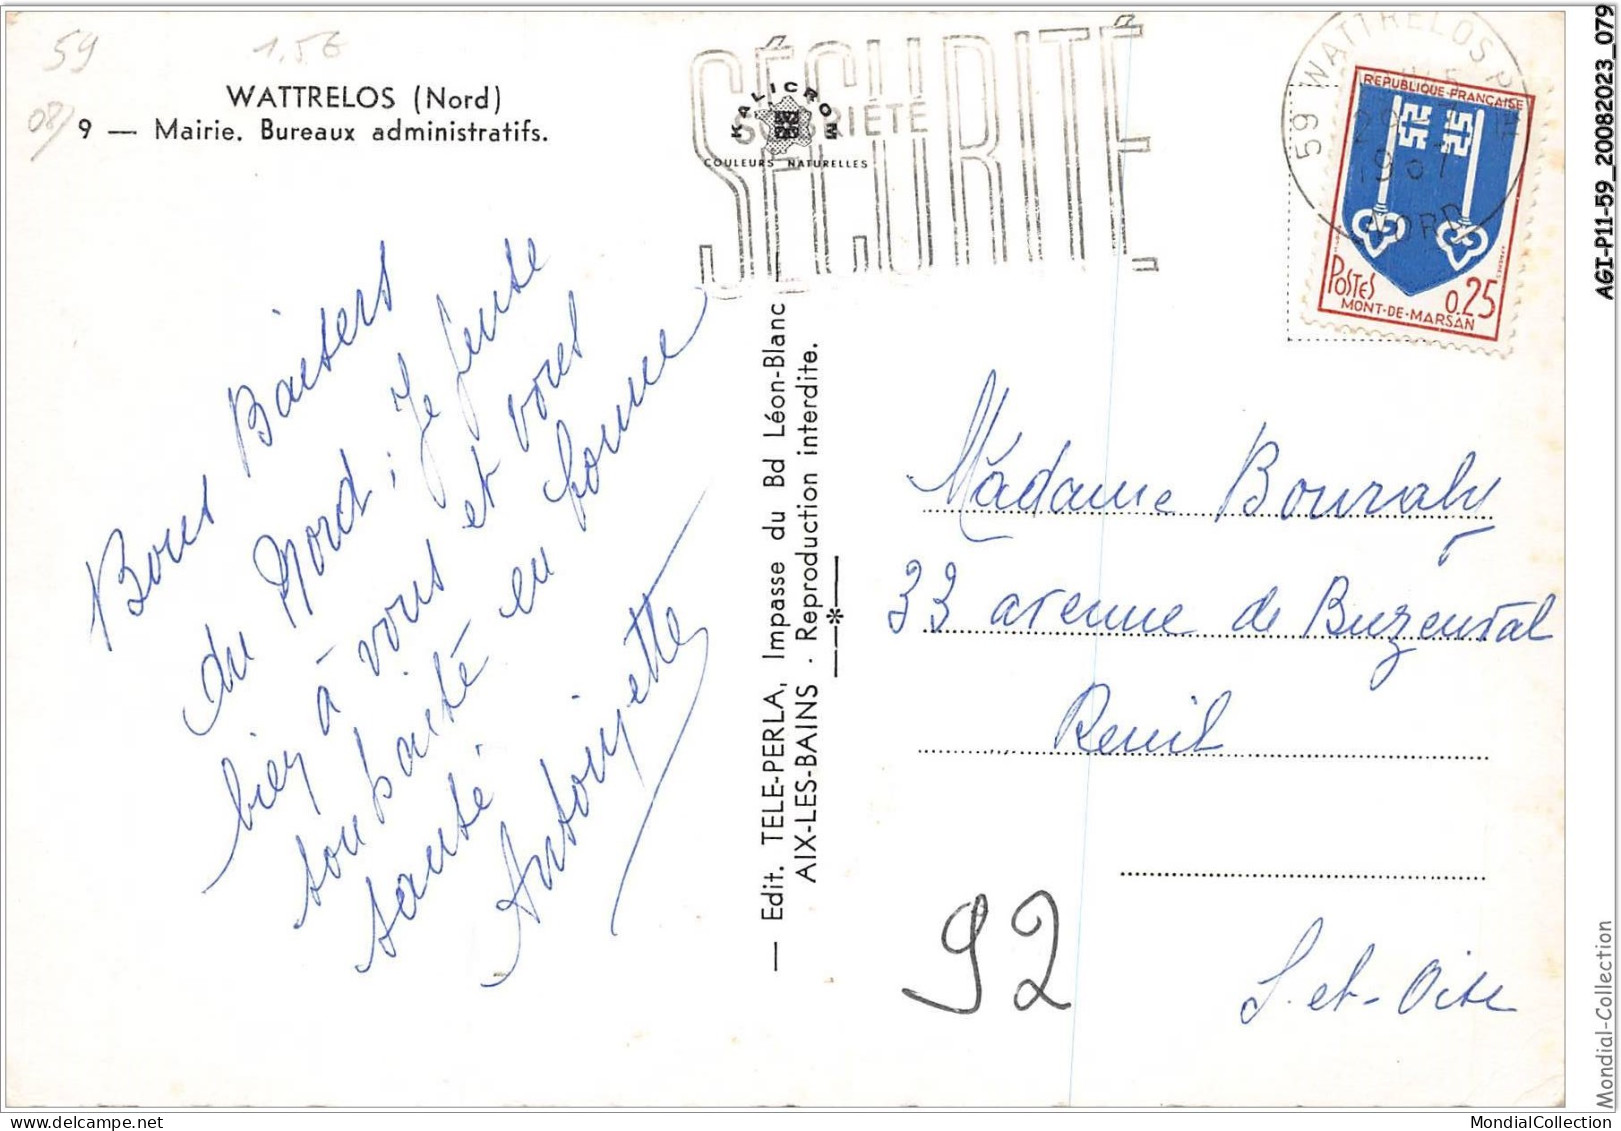 59
1,56
08/
WATTRELOS (Nord)
9 — Mairie. Bureaux administratifs.
KALICROM
COULEURS NATURELLES
SÉCURITÉ
SOBRIÉTÉ
SÉCURITÉ
59 WATTRELOS
1967
NORD
REPUBLIQUE FRANÇAISE
POSTES
0,25
MONT-DE-MARSAN
Bons Baisers
du Nord ; Je pense
bien à vous et vous
souhaite en bonne
santé
Antoinette
— Edit. TELE-PERLA, Impasse du Bd Léon-Blanc
AIX-LES-BAINS · Reproduction interdite.
Madame Bouraly
33 avenue de Buzenval
Reuil
S. et-Oise
92
AGI-P11-59_20082023_079
Mondial-Collection
MondialCollection